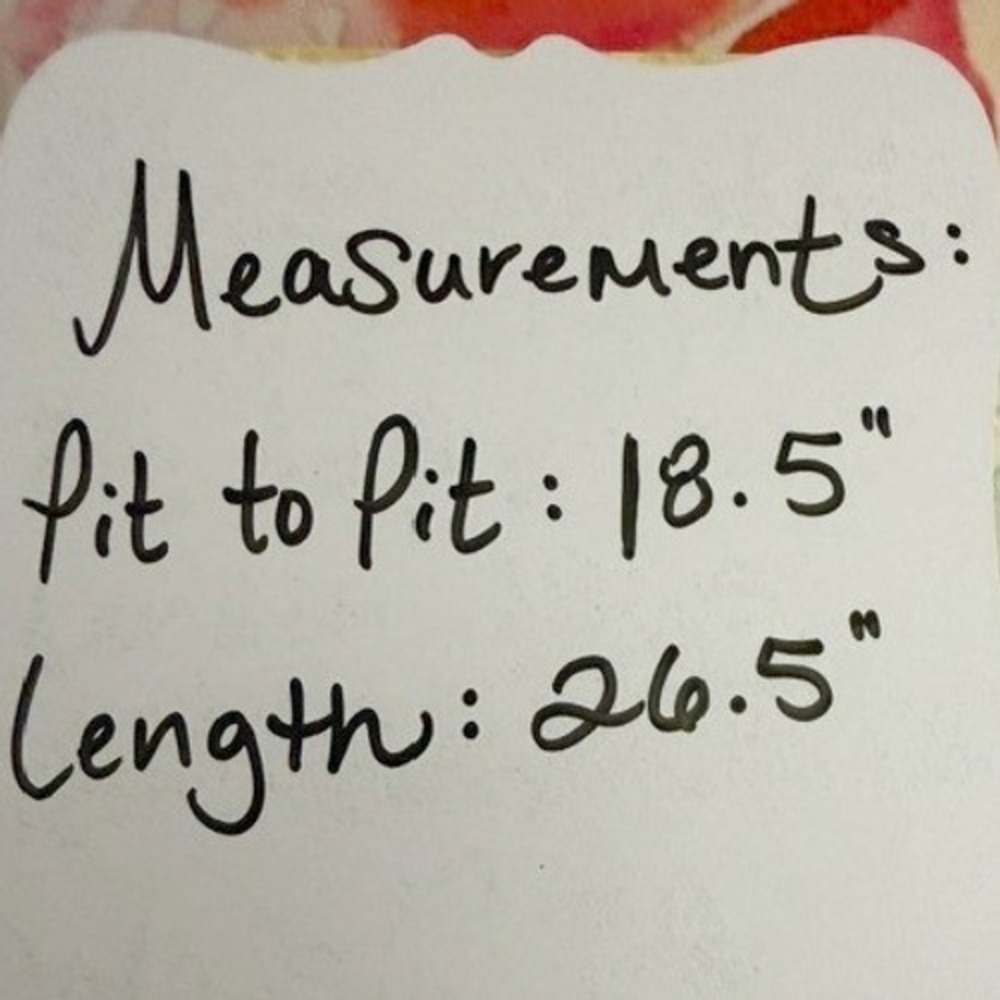 Measurements:
Pit to Pit: 18.5"
Length: 26.5"